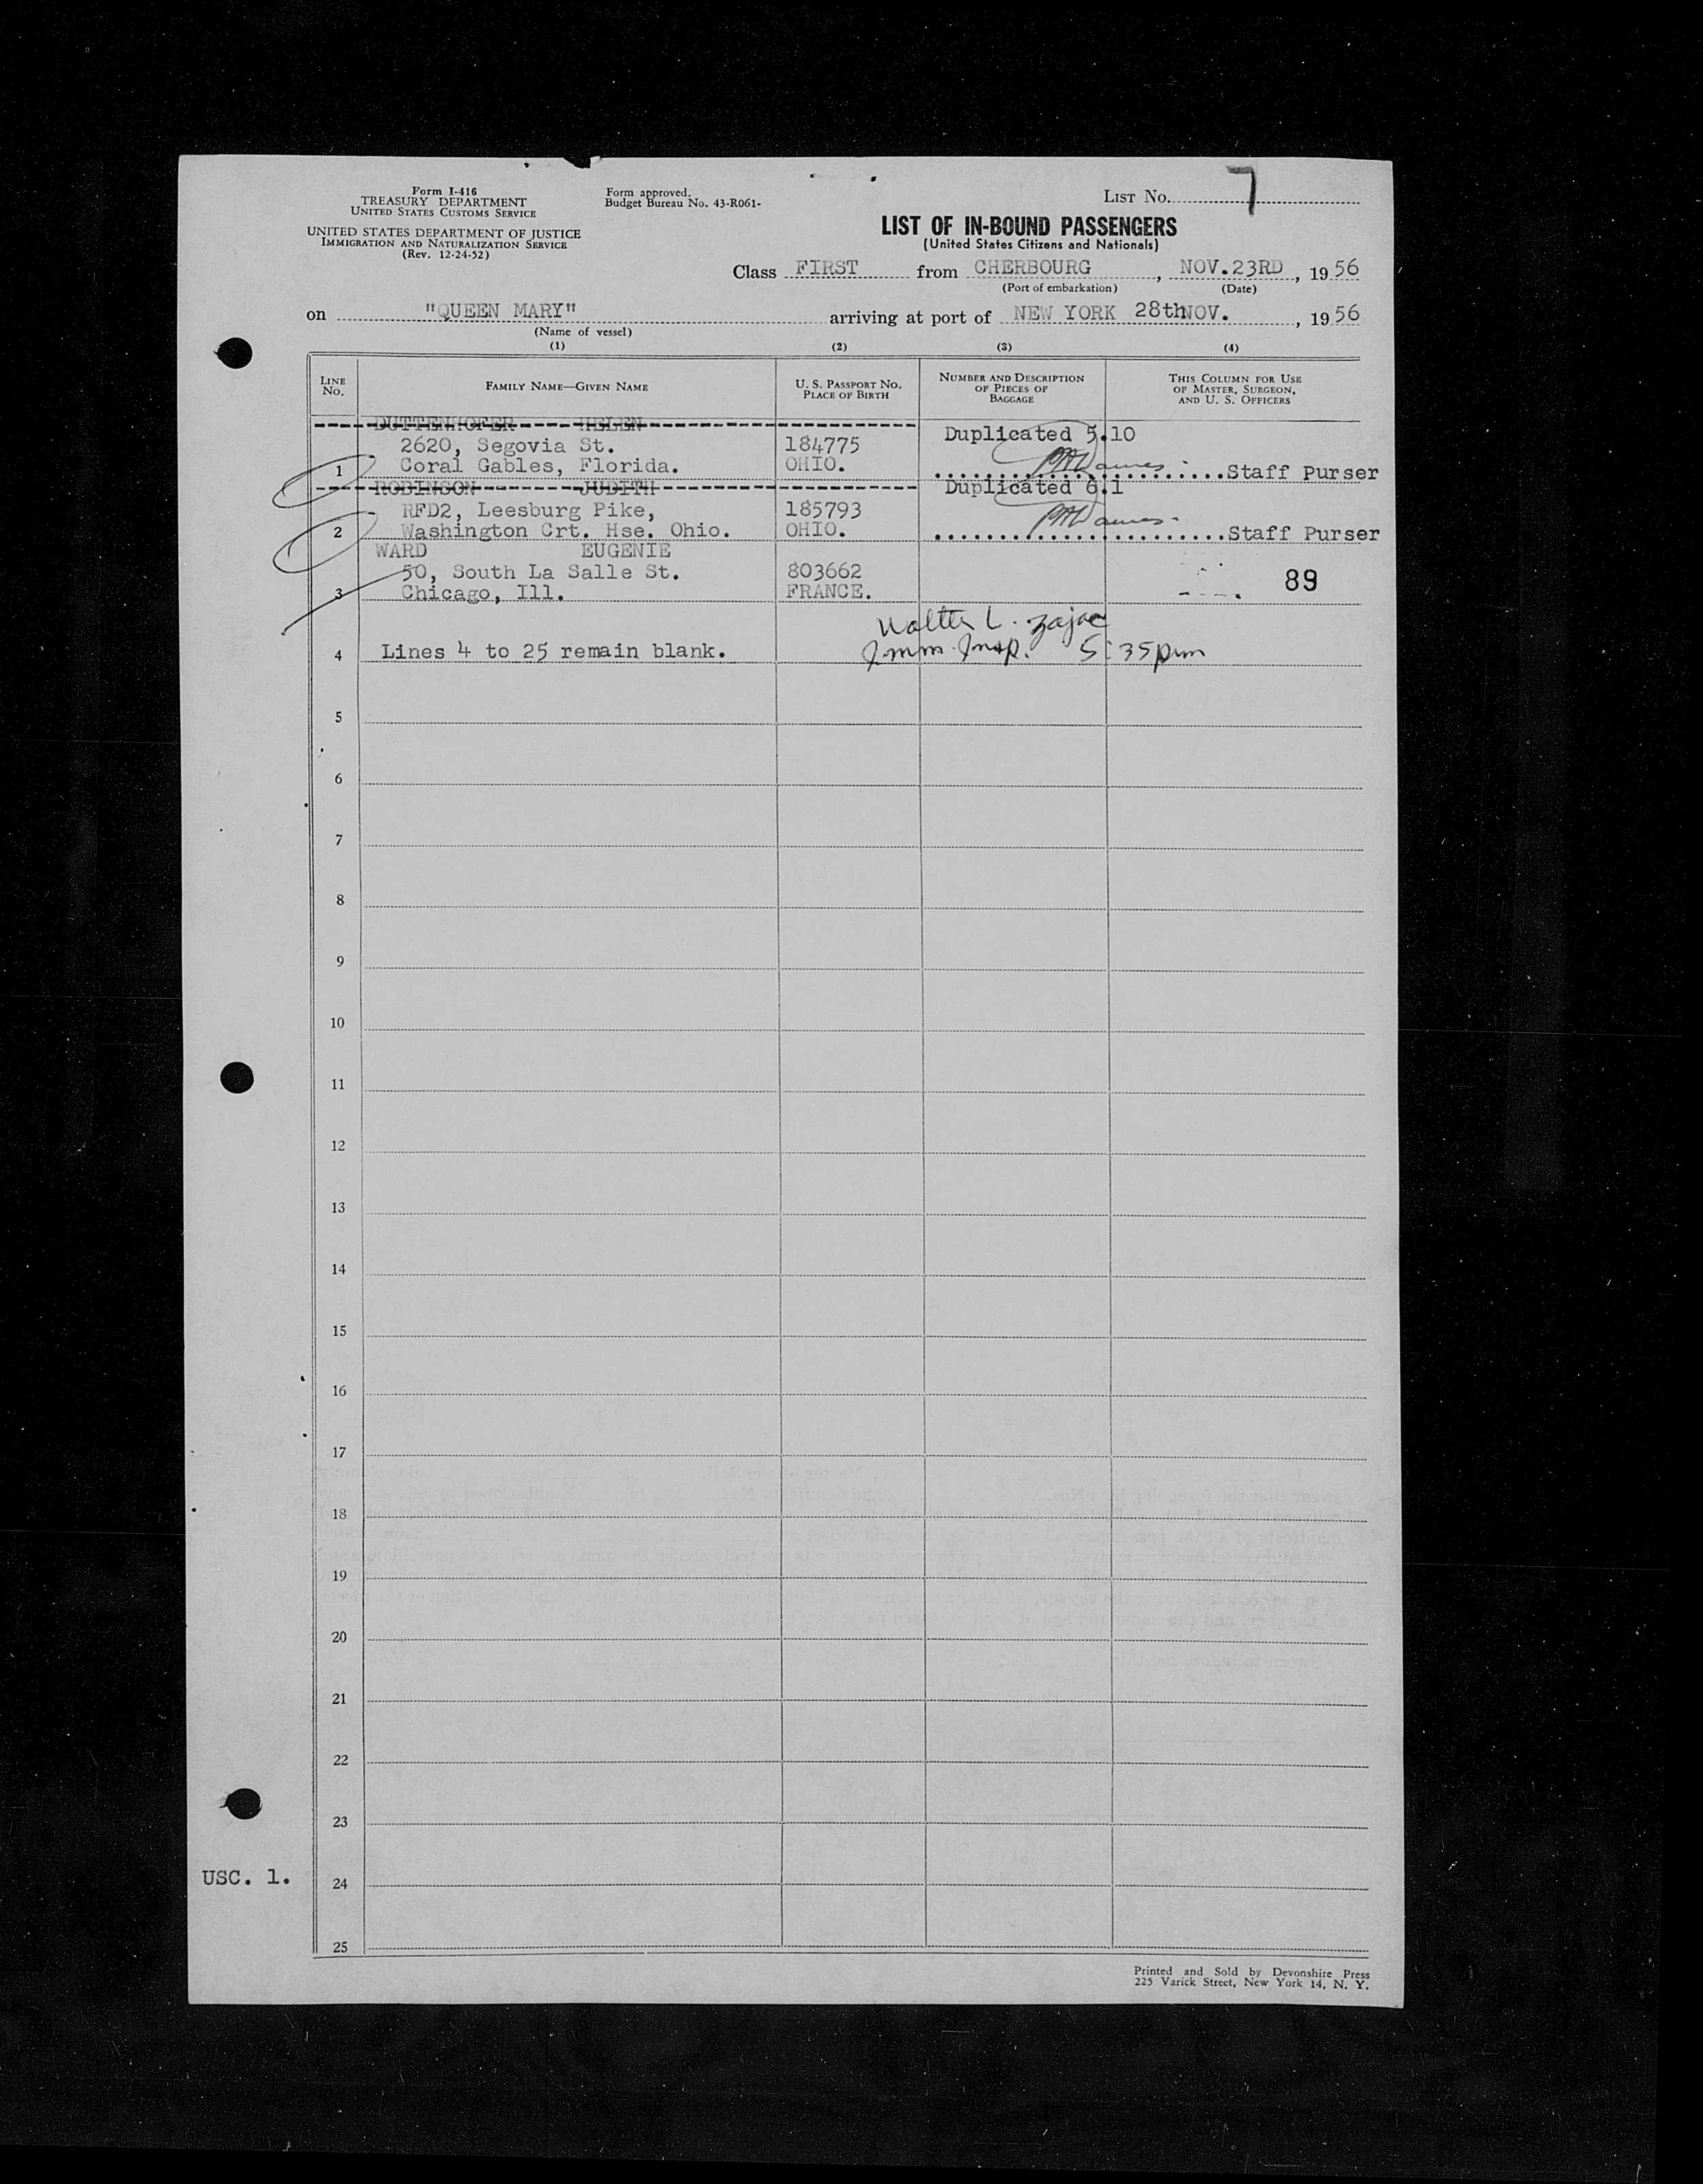 Form I-416
TREASURY DEPARTMENT
UNITED STATES CUSTOMS SERVICE
UNITED STATES DEPARTMENT OF JUSTICE
IMMIGRATION AND NATURALIZATION SERVICE
(Rev. 12-24-52)
Form approved.
Budget Bureau No. 43-R061-
LIST No. 7
LIST OF IN-BOUND PASSENGERS
(United States Citizens and Nationals)
Class FIRST from CHERBOURG, NOV.23RD, 1956
(Port of embarkation) (Date)
on "QUEEN MARY" arriving at port of NEW YORK 28thNOV., 1956
(Name of vessel)
(1) (2) (3) (4)
LINE No. FAMILY NAME—GIVEN NAME U. S. PASSPORT No. PLACE OF BIRTH NUMBER AND DESCRIPTION OF PIECES OF BAGGAGE THIS COLUMN FOR USE OF MASTER, SURGEON, AND U. S. OFFICERS
DUTTENHOFER HELEN
2620, Segovia St. 184775 Duplicated 5.10
1 Coral Gables, Florida. OHIO. Staff Purser
ROBINSON JUDITH Duplicated 6.1
RFD2, Leesburg Pike, 185793
2 Washington Crt. Hse. Ohio. OHIO. Staff Purser
WARD EUGENIE
50, South La Salle St. 803662 89
3 Chicago, Ill. FRANCE.
Walter L. Zajac
4 Lines 4 to 25 remain blank. Imm. Insp. 5:35pm
5
6
7
8
9
10
11
12
13
14
15
16
17
18
19
20
21
22
23
USC. 1. 24
25
Printed and Sold by Devonshire Press
225 Varick Street, New York 14, N. Y.